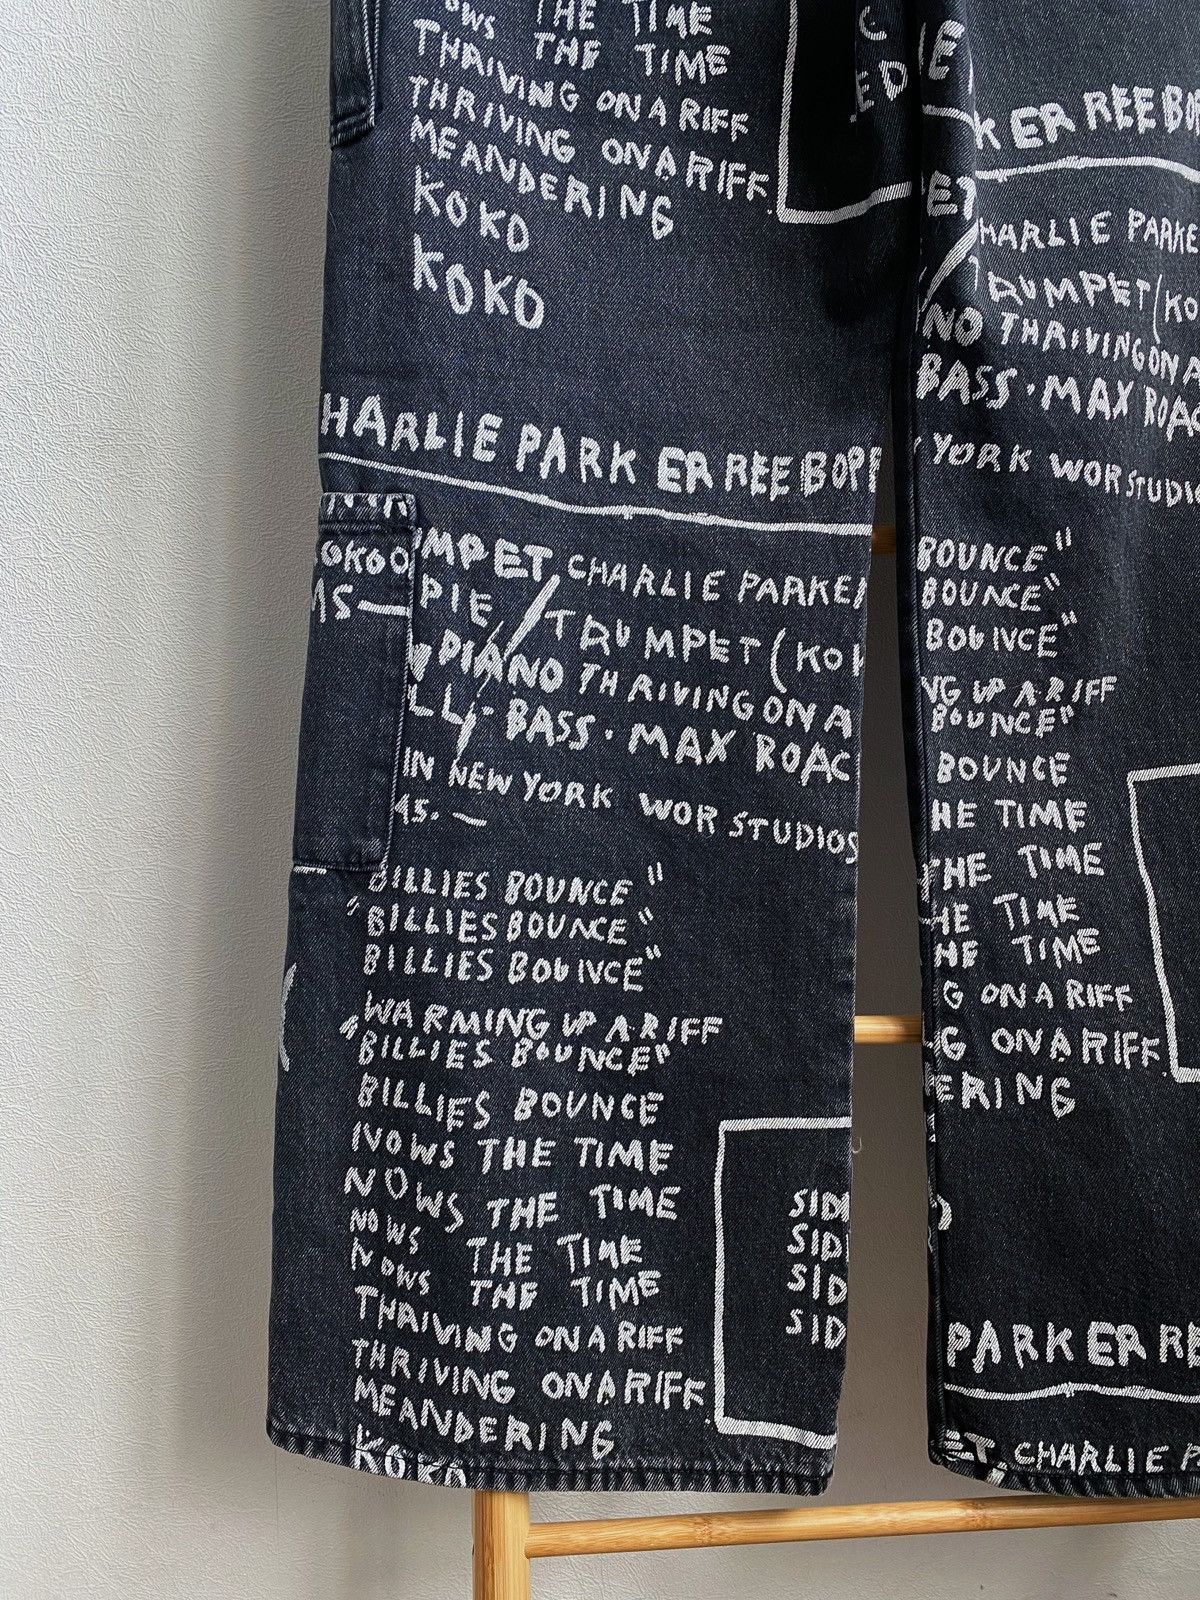 NOWS THE TIME
NOWS THE TIME
THRIVING ON A RIFF
THRIVING ON A RIFF
MEANDERING
KOKO
KOKO
ED
HARLIE PARK ER REE BOPE
MPET CHARLIE PARKER
OKOO
MS—
PIE / TRUMPET (KOK
PIANO THRIVING ON A
LLY • BASS • MAX ROAC
IN NEW YORK WOR STUDIOS
45. —
BILLIES BOUNCE"
"BILLIES BOUNCE"
BILLIES BOUNCE"
WARMING UP A RIFF
"BILLIES BOUNCE"
BILLIES BOUNCE
NOWS THE TIME
NOWS THE TIME
NOWS THE TIME
NOWS THE TIME
THRIVING ON A RIFF
THRIVING ON A RIFF
MEANDERING
KOKO
SID
SID
SID
SID
LE
K ER REE BOP
ET
HARLIE PARKE
TRUMPET (KO
NO THRIVING ON A
BASS • MAX ROAC
YORK WOR STUDIO
BOUNCE"
BOUNCE"
BOUNCE"
NG UP A RIFF
BOUNCE"
BOUNCE
HE TIME
THE TIME
HE TIME
HE TIME
G ON A RIFF
G ON A RIFF
ERING
O
PARK ER RE
ET CHARLIE P